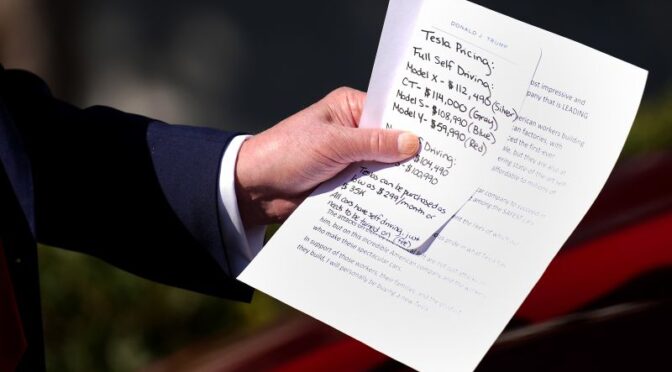 DONALD J. TRUMP
Tesla Pricing:
Full Self Driving:
Model X - $112,490 (Silver)
CT - $114,000 (Gray)
Model S - $108,990 (Blue)
Model Y - $59,990 (Red)
Driving:
$104,490
$100,990
Tesla can be purchased as
low as $299/month or
$35K
All cars have self driving, just
needs to be turned on
ost impressive and
pany that is LEADING
merican workers building
can factories, with
ed the first-ever
life, but they are also at
ering state of the art self
affordable to millions of
car company to succeed in
among the SAFEST
the lives of
pride in what
The attacks
him, but on this incredible American company, and the
who make these spectacular cars.
In support of those workers, their families, and the product
they build, I will personally be buying a new Tesla